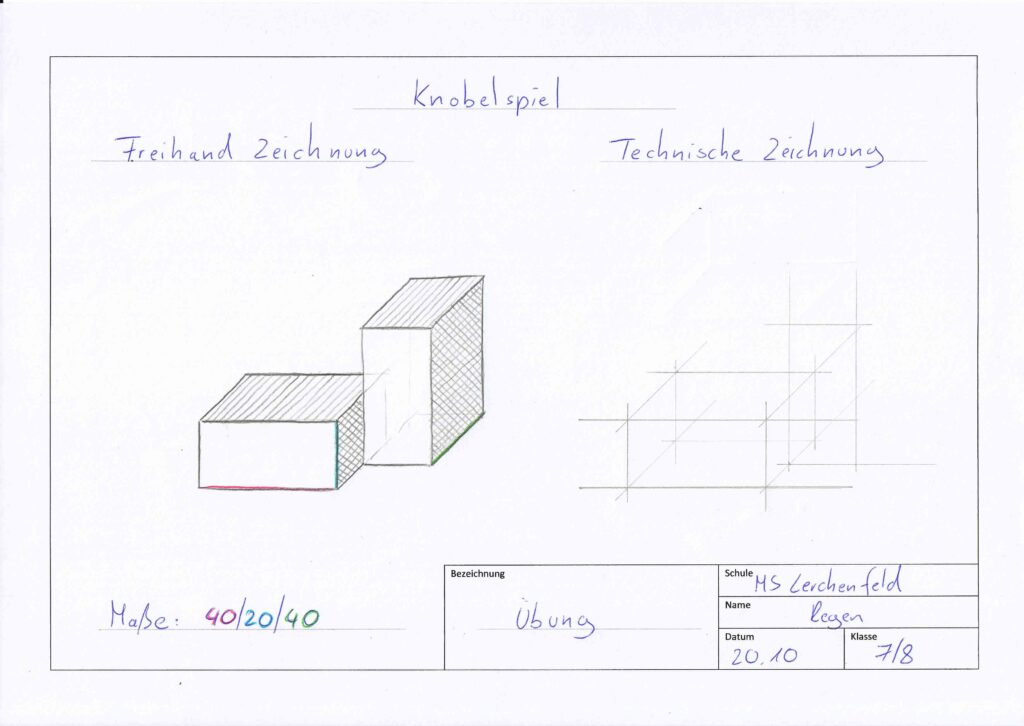 Knobelspiel
Freihand Zeichnung
Technische Zeichnung
Maße: 40/20/40
Bezeichnung
Übung
Schule MS Lerchenfeld
Name
Datum
20.10
Klasse
7/8